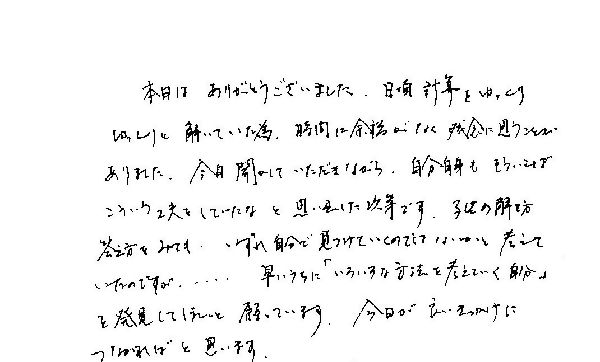 本日は ありがとうございました。日頃 計算をゆっくり
じっくりと 解いていた為、時間に余裕がなく残念に思うことが
ありました。今日 聞かせていただきながら、自分自身も そういえば
こういう工夫をしていたなと 思い出した次第です。子供の解き方
答え方をみても、いずれ自分で見つけていくのではないかと 考えて
いたのですが、..... 早いうちに「いろいろな方法を考えていく自分」
を発見してほしいと 願っています。今日が 良いきっかけに
つながればと 思います。